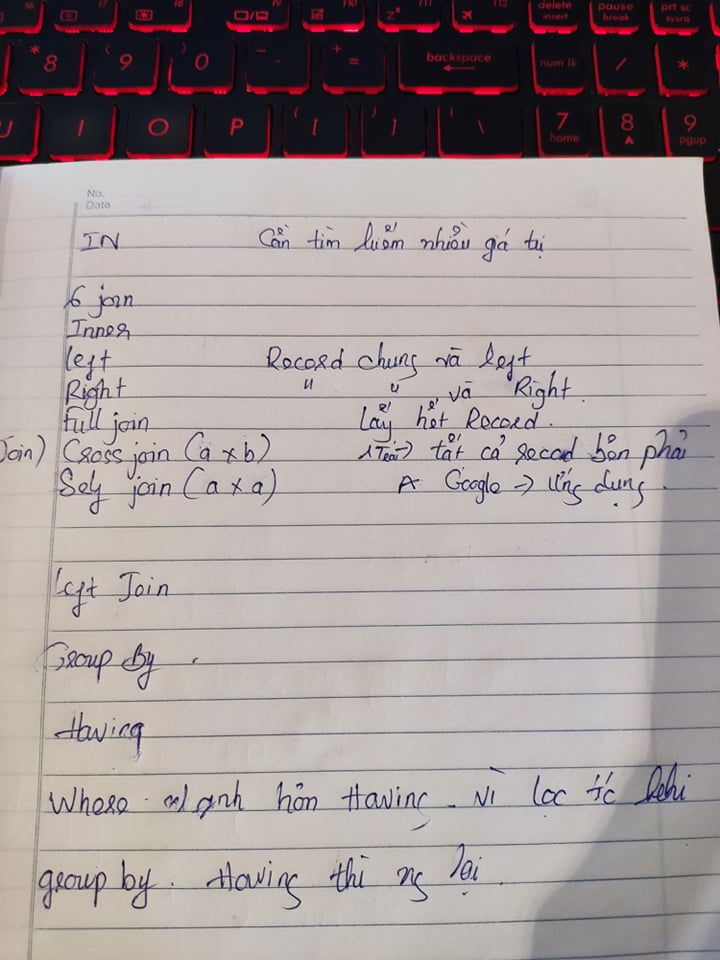 F10 F11 F12 delete insert pause break prt sc sysrq
* 8 ( 9 ) 0 - + = backspace num lk / *
U I O P { [ } ] | \ 7 home 8 9 pgup
No.
Date
IN Cần tìm kiếm nhiều gá tị
6 join
Inner
left Record chung và left
Right " " và Right.
Full join Lấy hết Record.
Join) Cross join (a x b) 1 Trái -> tất cả record bên phải
Self join (a x a) Google -> ứng dụng.
Left Join
Group By .
Having
Where mạnh hơn Having. Vì lọc tc khi
group by. Having thì ng lại.